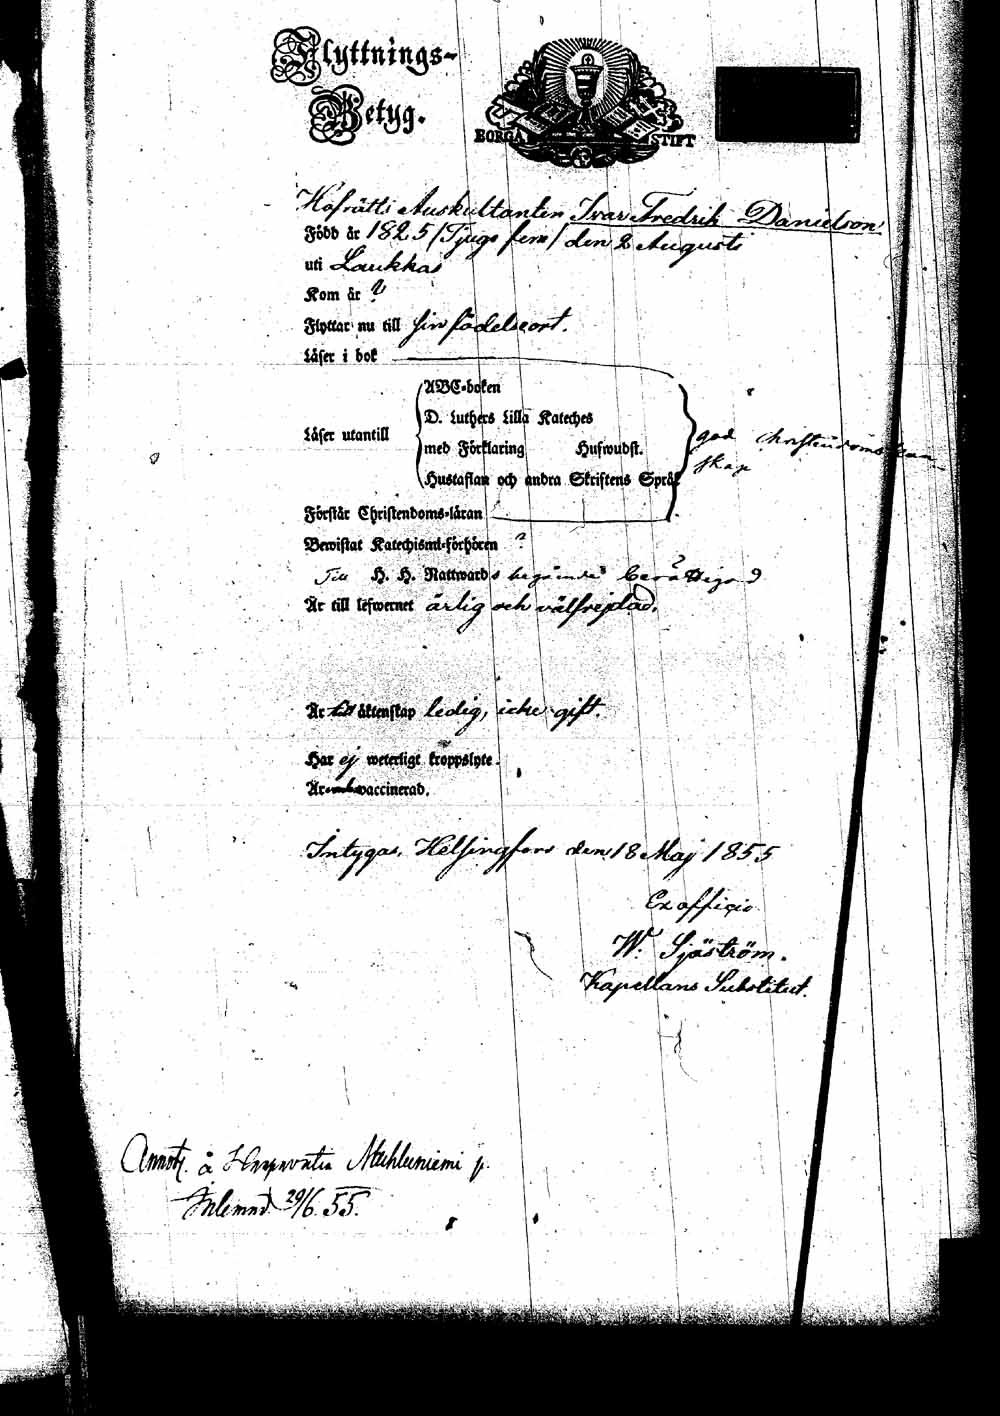 Flyttnings-
Betyg.
BORGÅ STIFT
Hofrätts Auskultanten Ivar Fredrik Danielson
Född år 1825 /Tjugo fem/ den 2 Augusti
uti Laukkas
Kom år ?
Flyttar nu till sin födelseort.
Läser i bok
ABC-boken
D. Luthers Lilla Kateches
Läser utantill
med Förklaring Huswudst.
god christendoms kun-
skap
Hustaflan och andra Skriftens Språk
Förstår Christendoms-läran
Bewistat Katechismi-förhören ?
Till H. H. Nattward s begående berättigad
Är till lefwernet ärlig och välfrejdad.
Är till äktenskap ledig, icke gift.
Har ej weterligt kroppslyte.
Är vaccinerad.
Intygas, Helsingfors den 18 Maj 1855
Ex officio
W. Sjöström.
Kapellans Substitut.
Annot. å Muhluniemi p.
Inlemnd 29/6. 55.